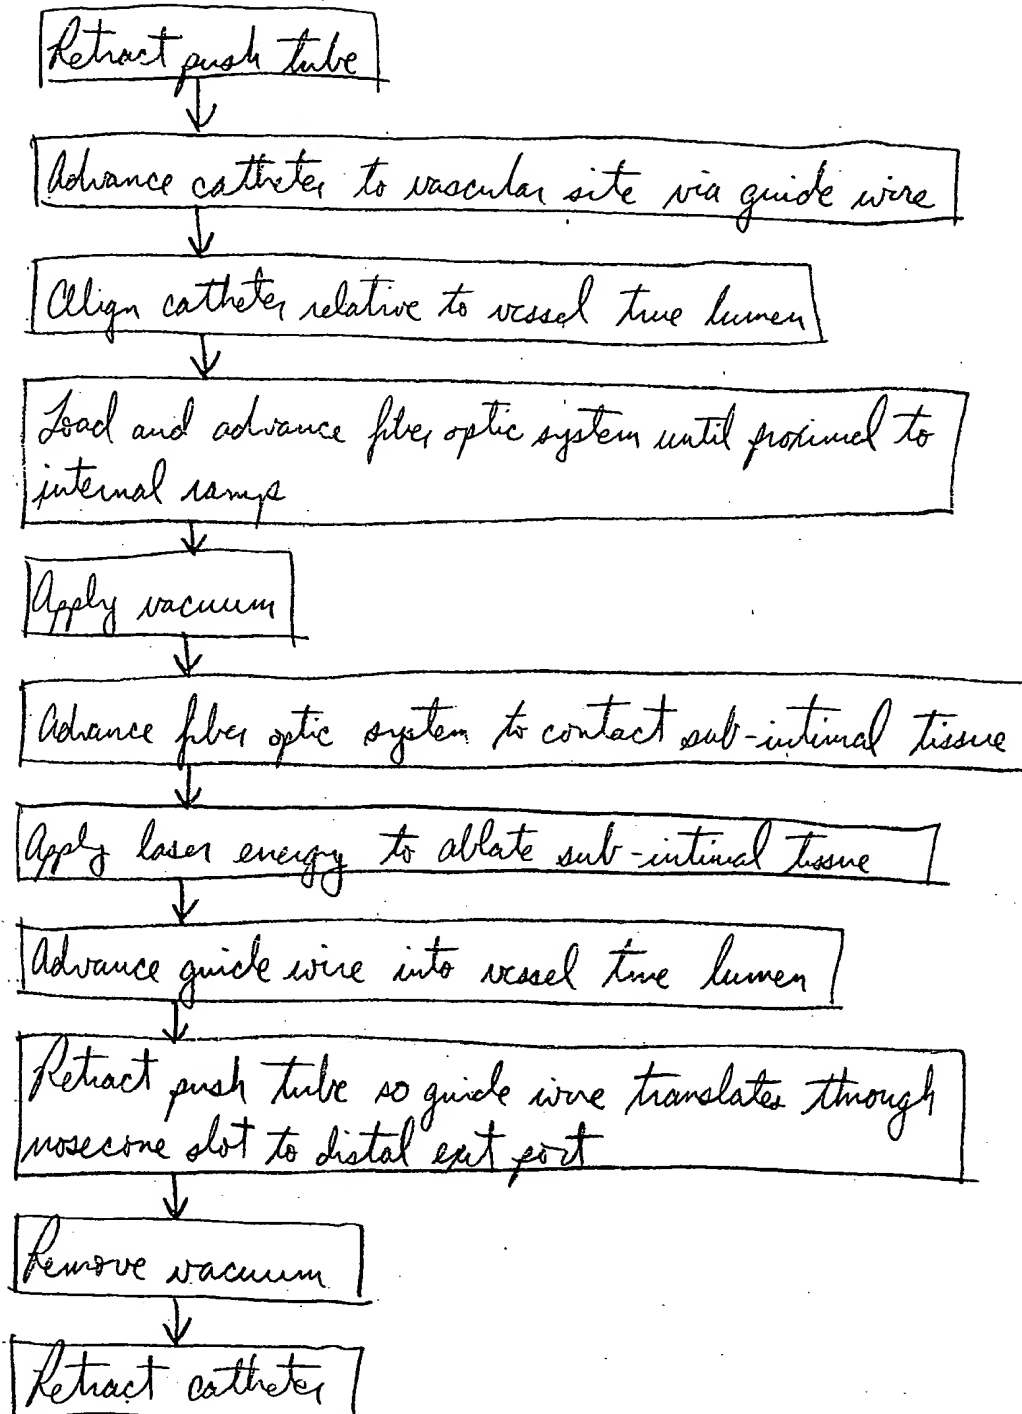 Retract push tube
Advance catheter to vascular site via guide wire
Align catheter relative to vessel true lumen
Load and advance fiber optic system until proximal to
internal ramp
Apply vacuum
Advance fiber optic system to contact sub-intimal tissue
Apply laser energy to ablate sub-intimal tissue
Advance guide wire into vessel true lumen
Retract push tube so guide wire translates through
nosecone slot to distal exit port
Remove vacuum
Retract catheter